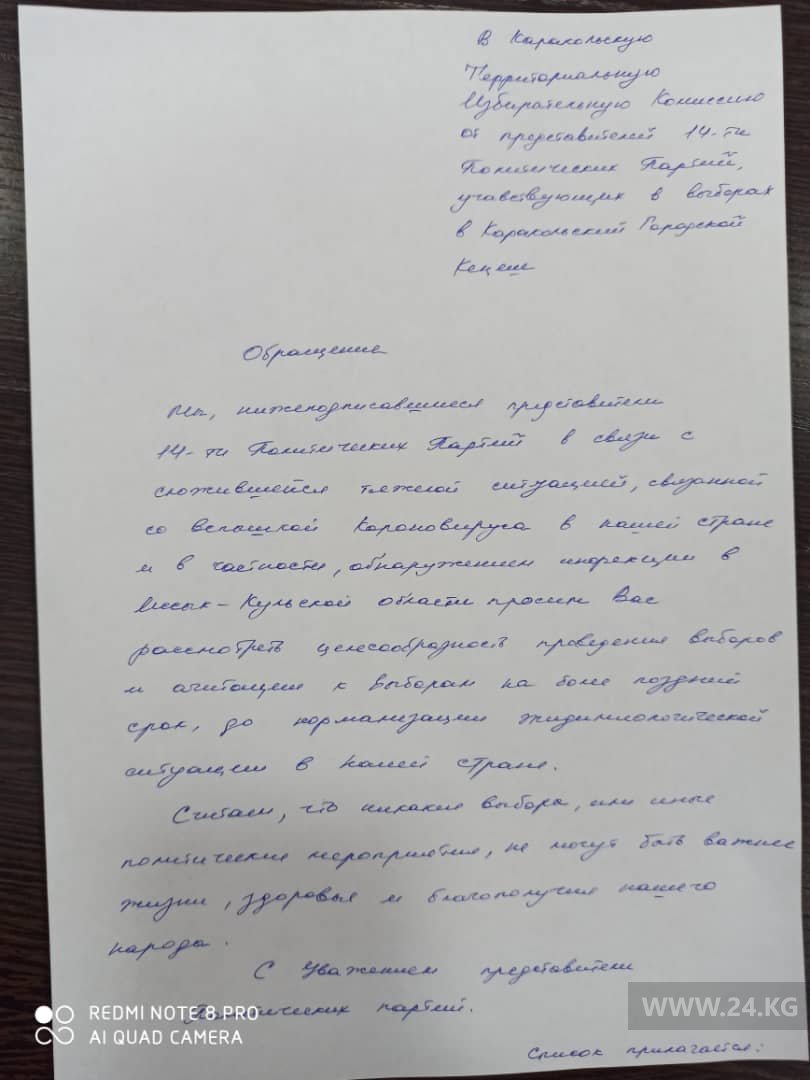 В Каракольскую
Территориальную
Избирательную Комиссию
от представителей 14-ти
Политических Партий,
учавствующих в выборах
в Каракольский Городской
Кенеш
Обращение
Мы, нижеподписавшиеся представители
14-ти Политических Партий в связи с
сложившейся тяжелой ситуацией, связанной
со вспышкой Короновируса в нашей стране
и в частности, обнаружением инфекции в
Иссык-Кульской области просим Вас
рассмотреть целесообразность проведения выборов
и агитации к выборам на более поздний
срок, до нормализации эпидимиологической
ситуации в нашей стране.
Считаем, что никакие выборы, или иные
политические мероприятия, не могут быть важнее
жизни, здоровья и благополучия нашего
народа.
С Уважением представители
Политических партий.
Список прилагается:
REDMI NOTE 8 PRO
AI QUAD CAMERA
WWW.24.KG